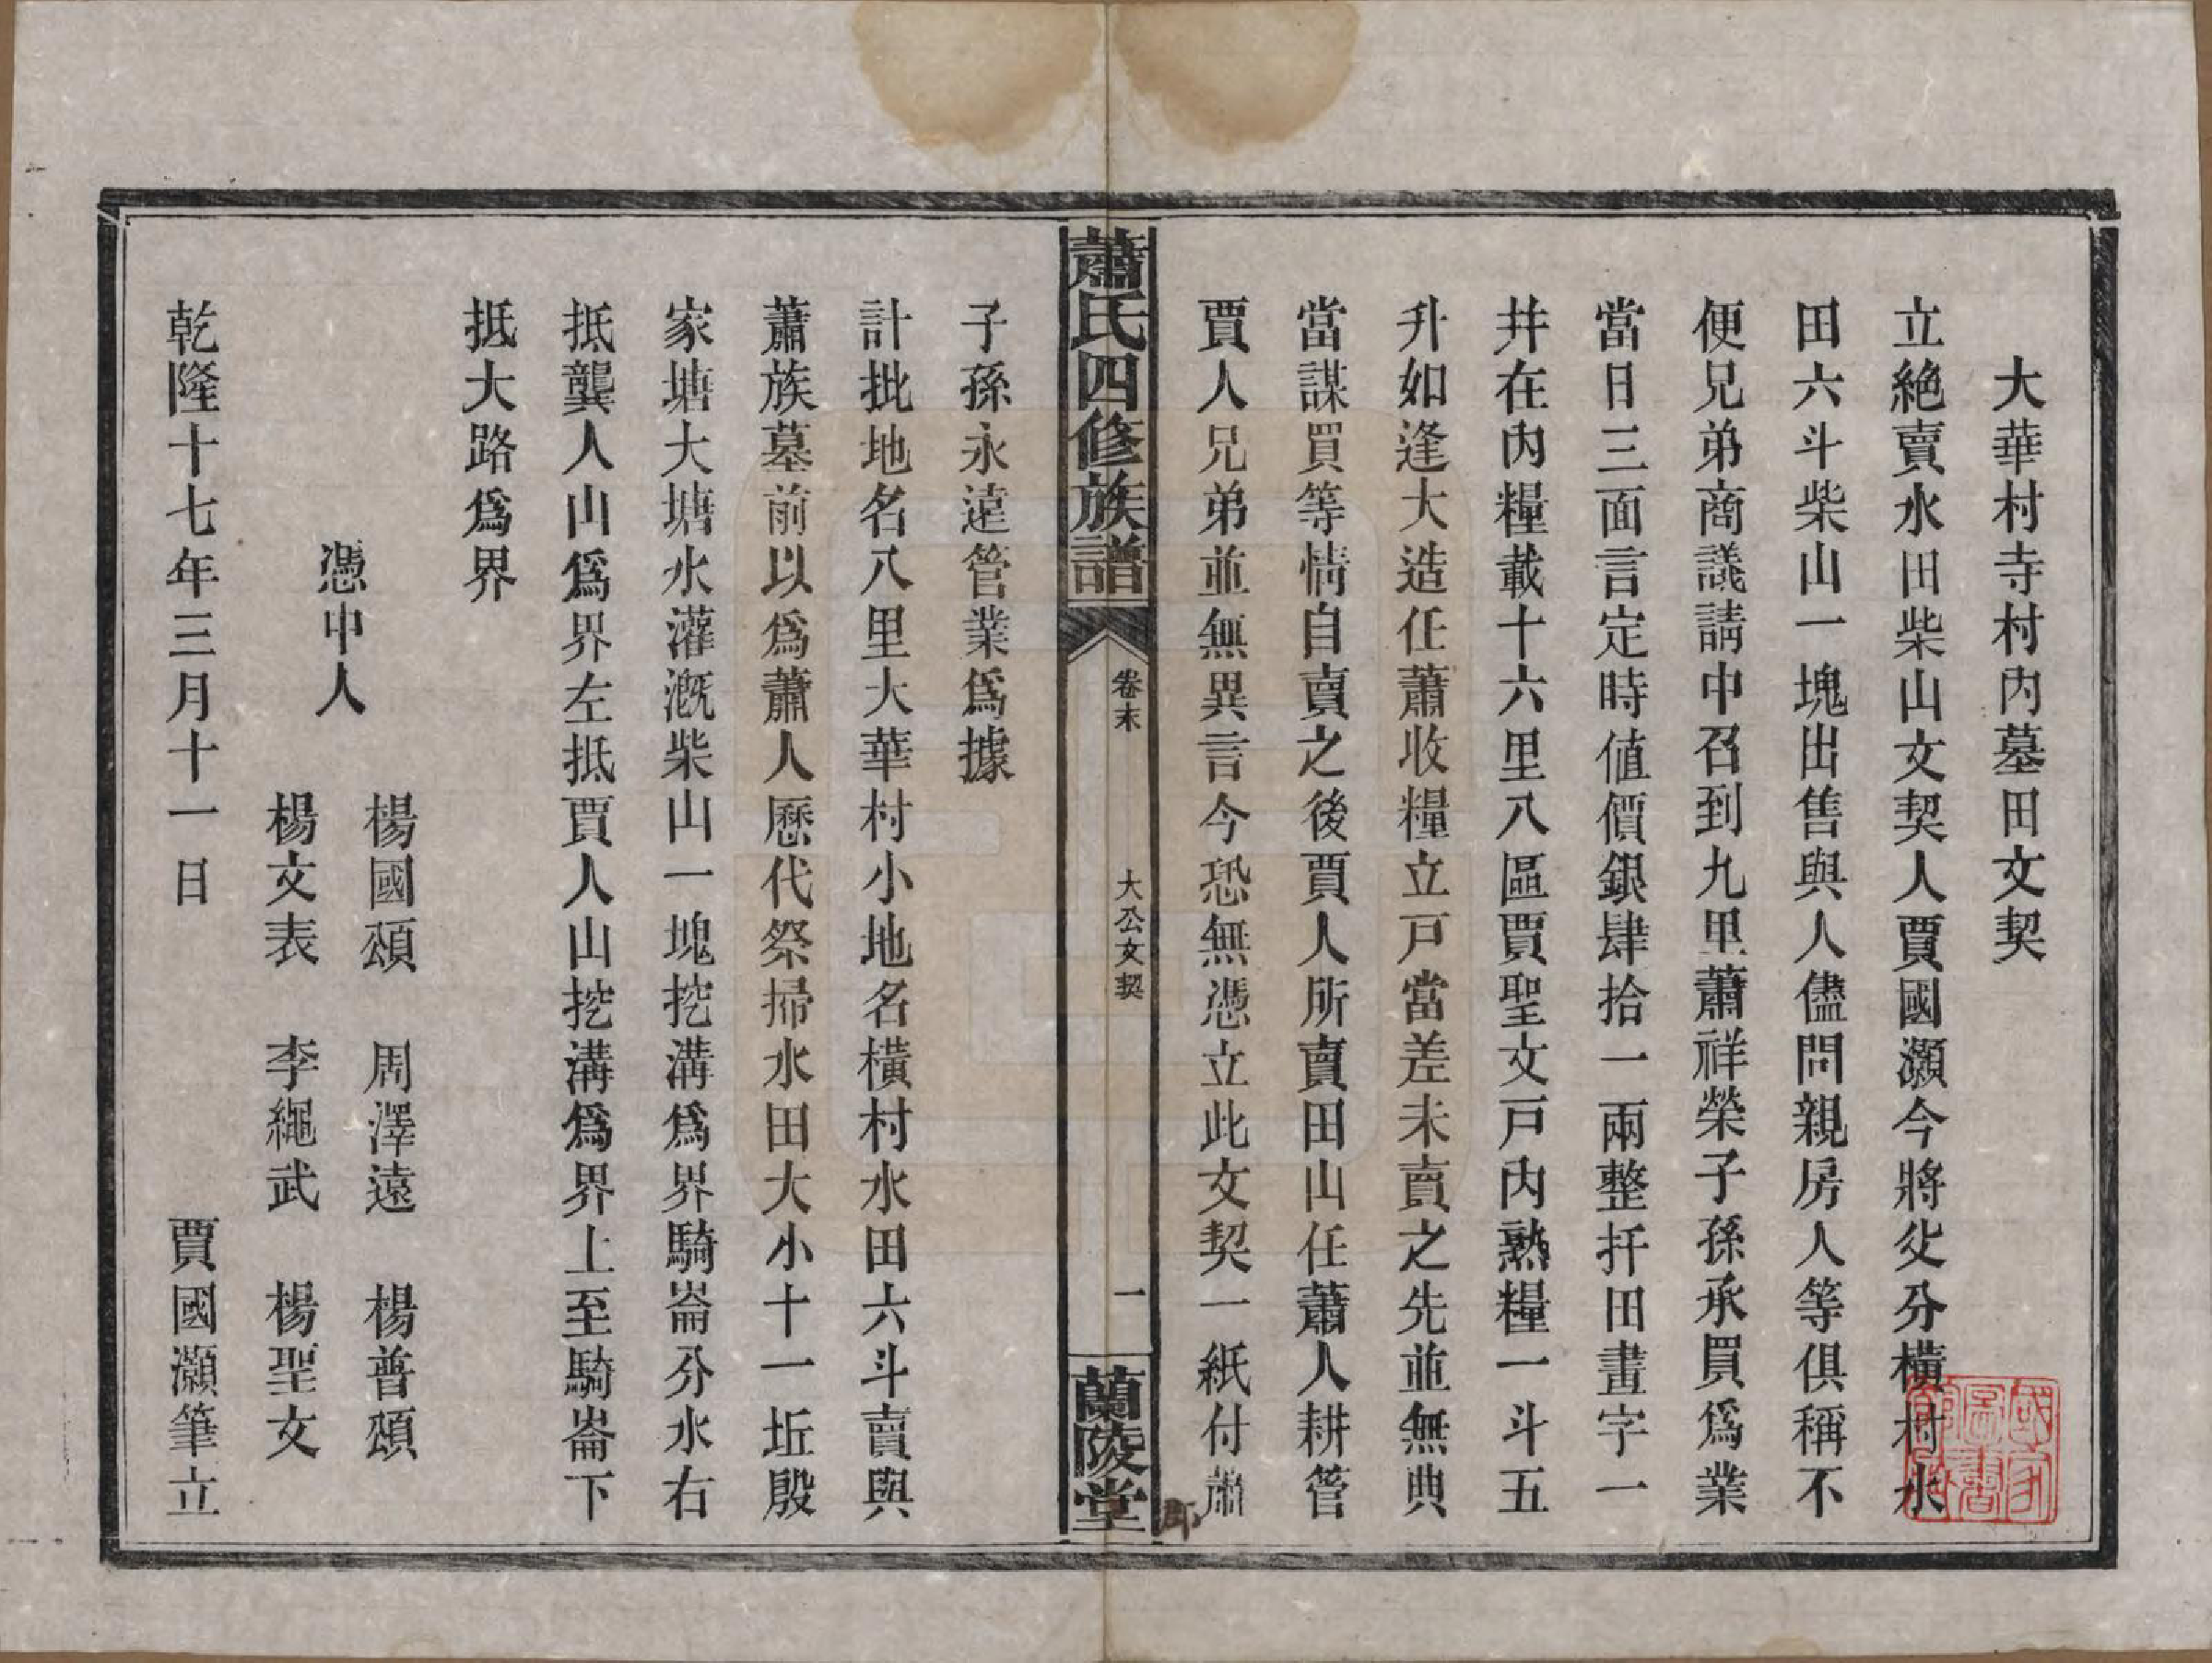 大華村寺村內墓田文契
立絶賣水田柴山文契人賈國灝今將父分橫村水
田六斗柴山一塊出售與人儘問親房人等俱稱不
便兄弟商議請中召到九里蕭祥榮子孫承買爲業
當日三面言定時値價銀肆拾一兩整扦田畫字一
幷在內糧載十六里八區賈聖文戸內熟糧一斗五
升如逢大造任蕭收糧立戸當差未賣之先並無典
當謀買等情自賣之後賈人所賣田山任蕭人耕管
賈人兄弟並無異言今恐無憑立此文契一紙付蕭
蕭氏四修族譜
卷末
大公文契
一
蘭陵堂
子孫永遠管業爲據
計批地名八里大華村小地名橫村水田六斗賣與
蕭族墓前以爲蕭人歷代祭掃水田大小十一坵殷
家塘大塘水灌漑柴山一塊挖溝爲界騎崙分水右
抵龔人山爲界左抵賈人山挖溝爲界上至騎崙下
抵大路爲界
楊國頌　周澤遠　楊普頌
憑中人
楊文表　李繩武　楊聖文
乾隆十七年三月十一日　賈國灝筆立